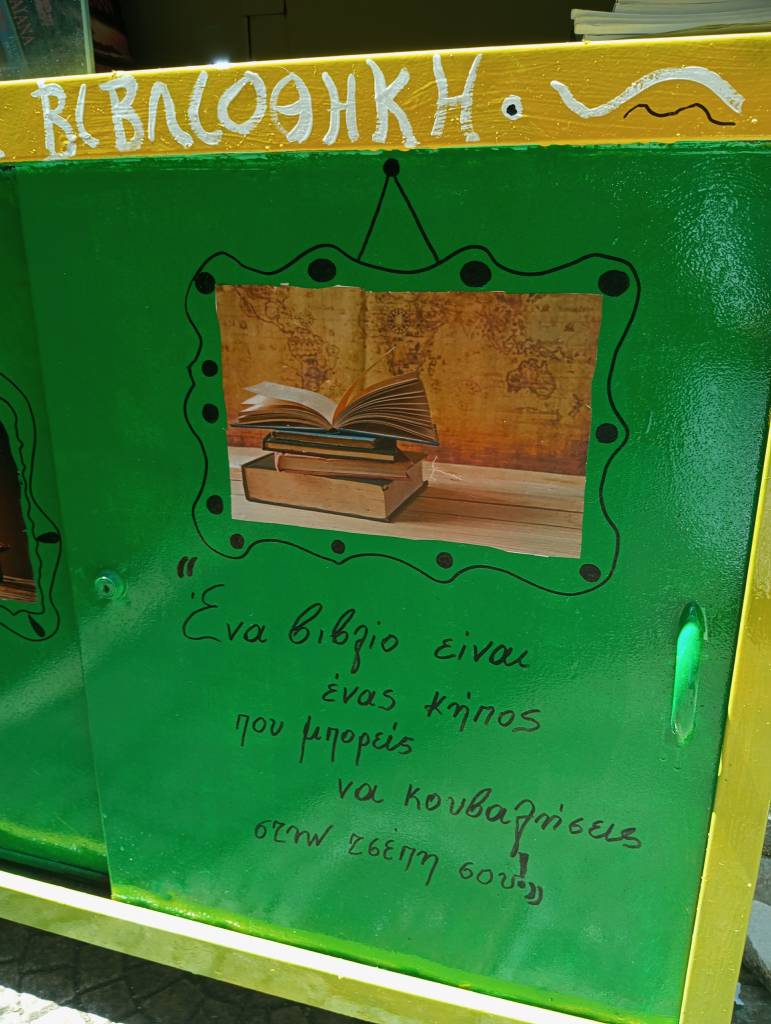 ΒΙΒΛΙΟΘΗΚΗ.
"Ένα βιβλίο είναι
ένας κήπος
που μπορείς
να κουβαλήσεις
στην τσέπη σου!"